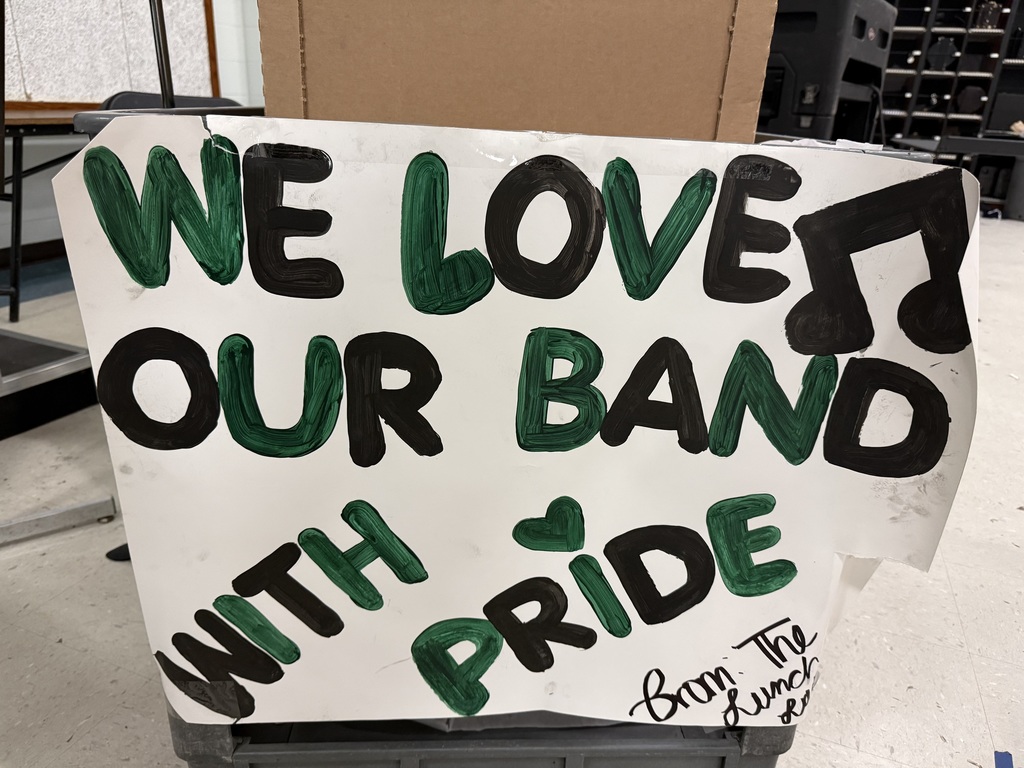 WE LOVE
OUR BAND
WITH PRIDE
From: The
Lunch